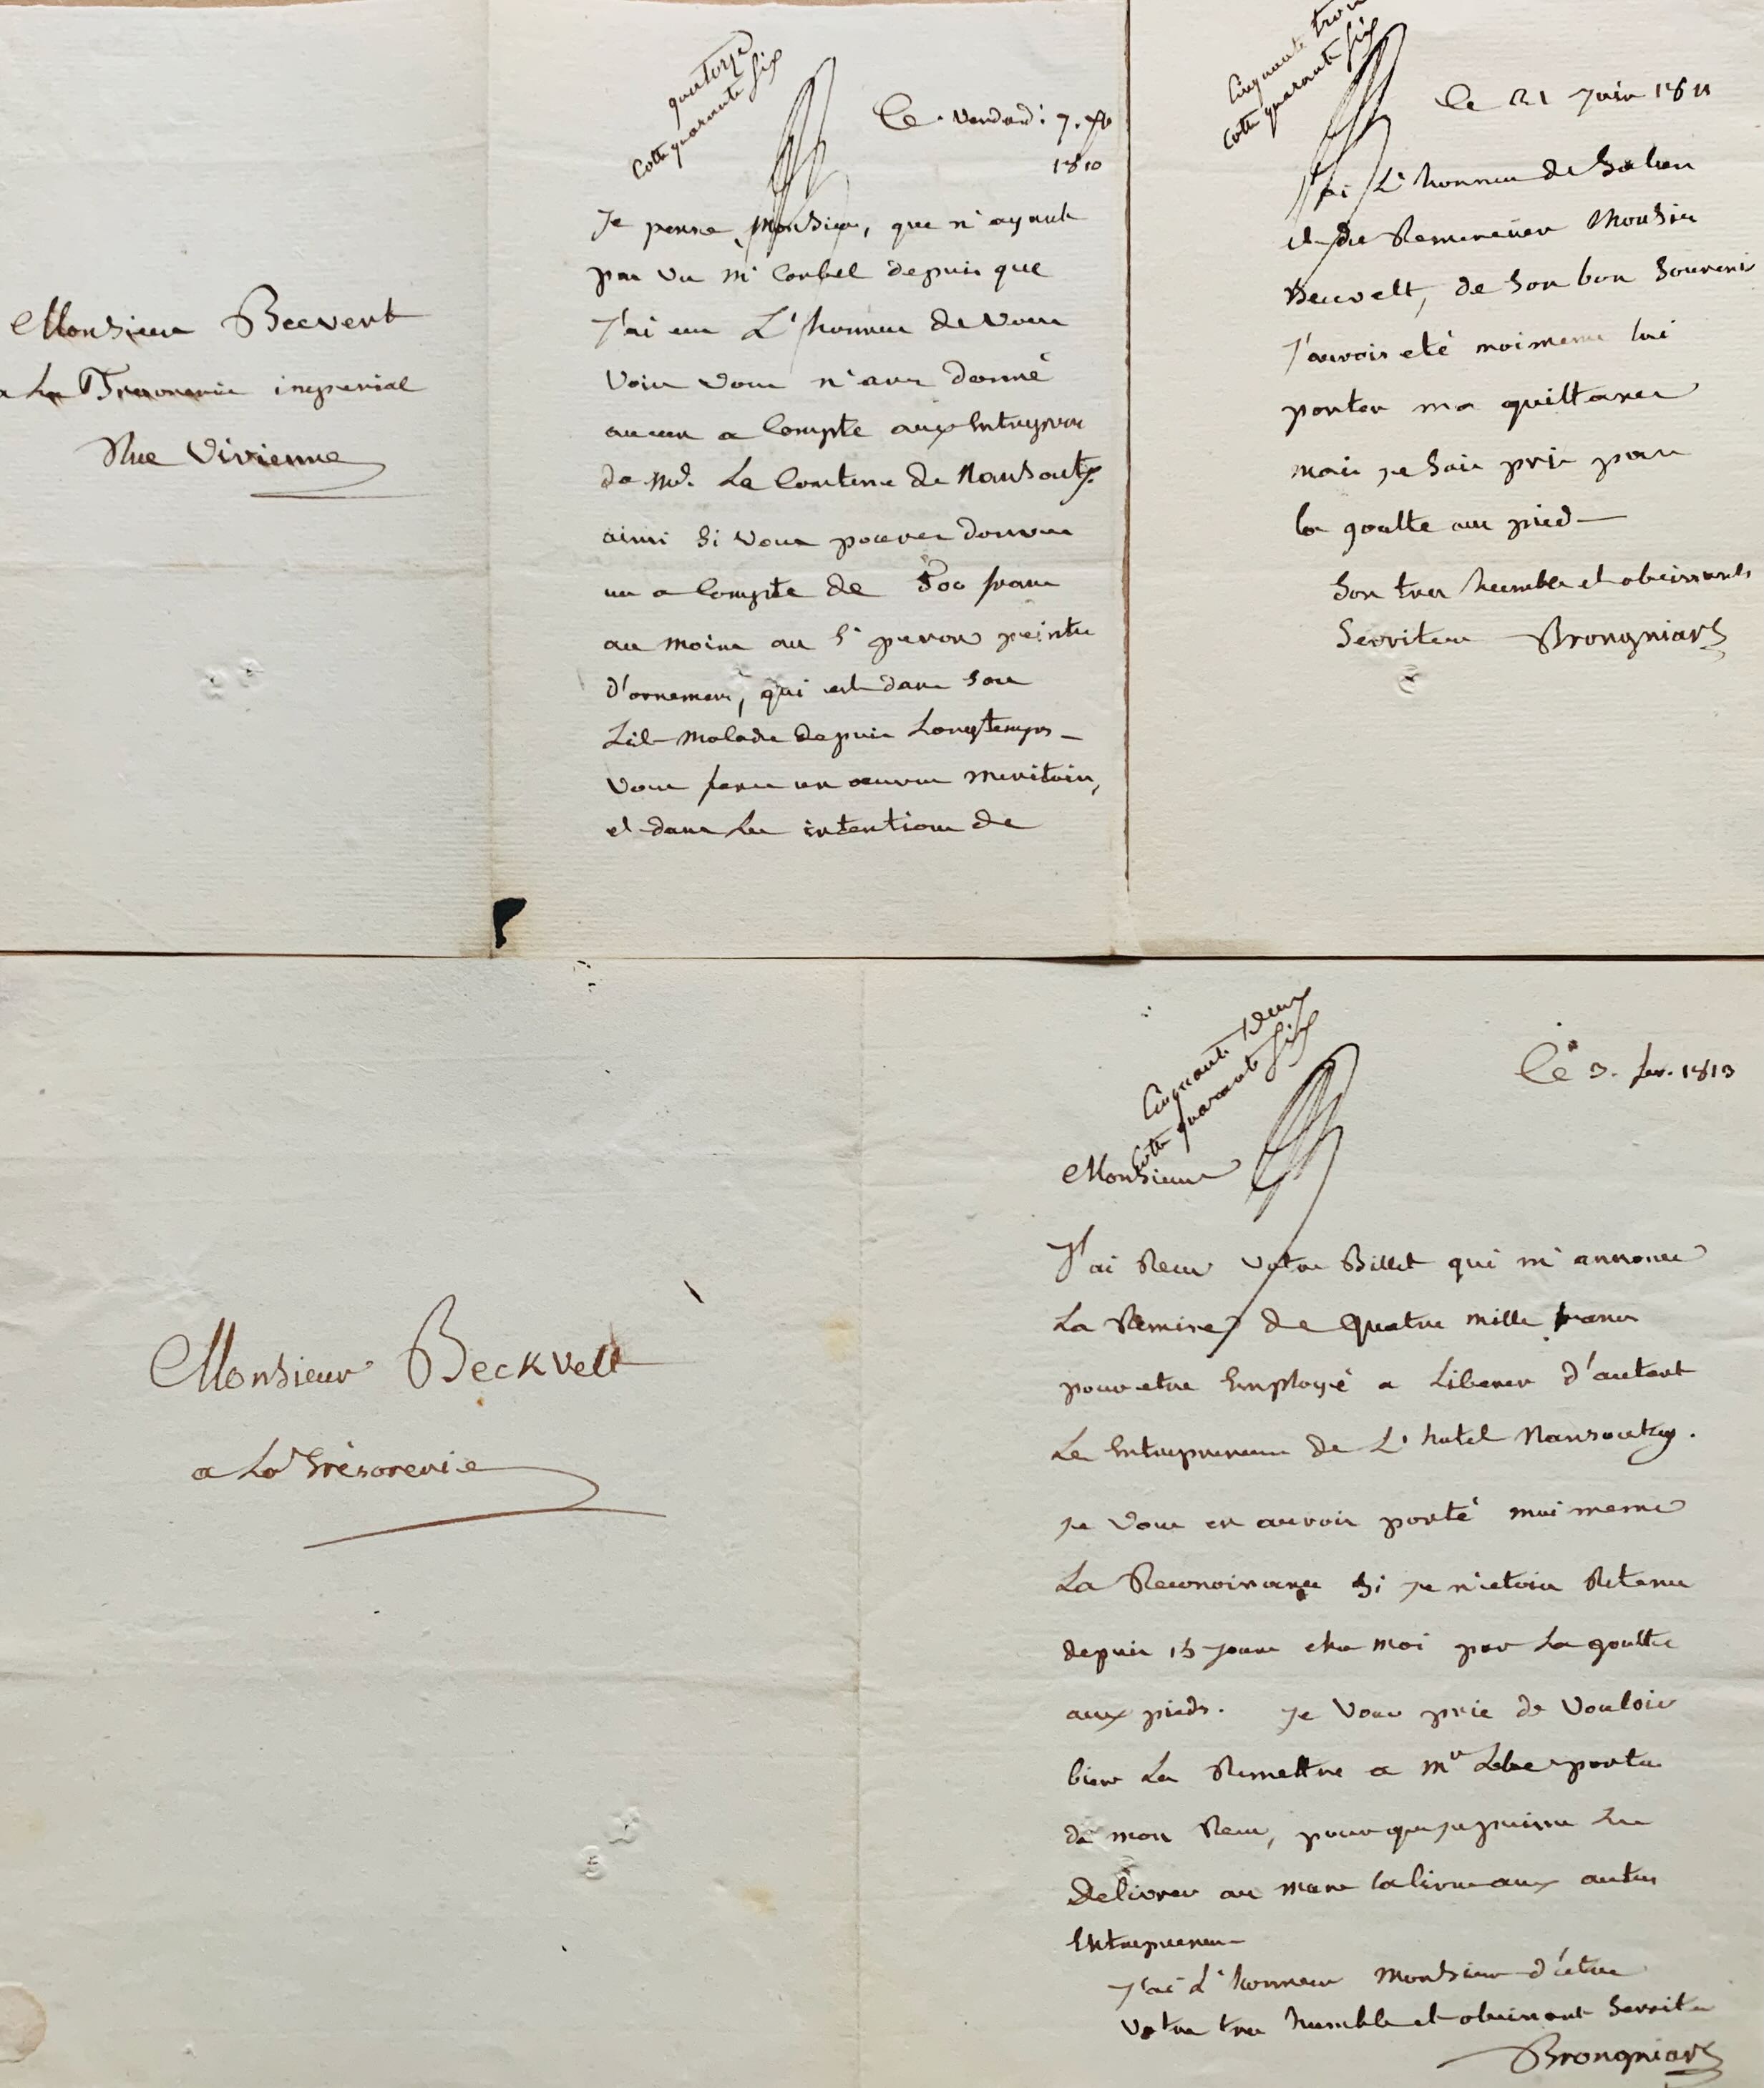 Monsieur Becvert
a La Tresorerie imperial
Rue Vivienne
quatorze
Cotte quarante Six
Le Vendredi 7. 
1810
Je pense, Monsieur, que n'ayant
pas vu Mr Corbel depuis que
J'ai eu L'honneur de vous
Voir vous n'avez donné
aucun a Compte aux Entrepren
de Me. La Comtesse de Nansouty.
ainsi Si vous pouvez donner
un a Compte de 500 franc
au moins au Sr peron peintre
d'ornemens, qui est dans Son
Lit malade depuis Longtemps_
Vous ferez un oeuvre meritoire,
et dans Les intentions de
Cinquante trois
Cotte quarante Six
Le 21 Juin 1811
J'ai L'honneur de Saluer
et de Remercier Monsieur
Becvelt, de Son bon Souvenir
J'aurois eté moimeme lui
porter ma quittance
mais je Suis pris par
la goutte au pied—
Son tres humble et obeissant
Serviteur Brongniart
Monsieur Beckvelt
a La trésorerie
Cinquante Deux
Cotte quarante Six
Le 3. fev. 1813
Monsieur
J'ai Recu Votre Billet qui m'annonce
La Remise de Quatre mille francs
pour etre Employé a Liberer d'autant
Les Entrepreneurs de L'hotel Nansouty.
Je Vous en aurois porté moi meme
La Reconoissance Si Je n'etois Retenu
depuis 15 Jours chez moi par La goutte
aux pieds. Je Vous prie de Vouloir
bien Les Remettre a Mr porteur
de mon Recu, pour que Je puisse Les
Delivrer au marc la livre aux autres
Entrepreneurs
J'ai L'honneur Monsieur d'etre
Votre tres humble et obeissant Servite
Brongniart